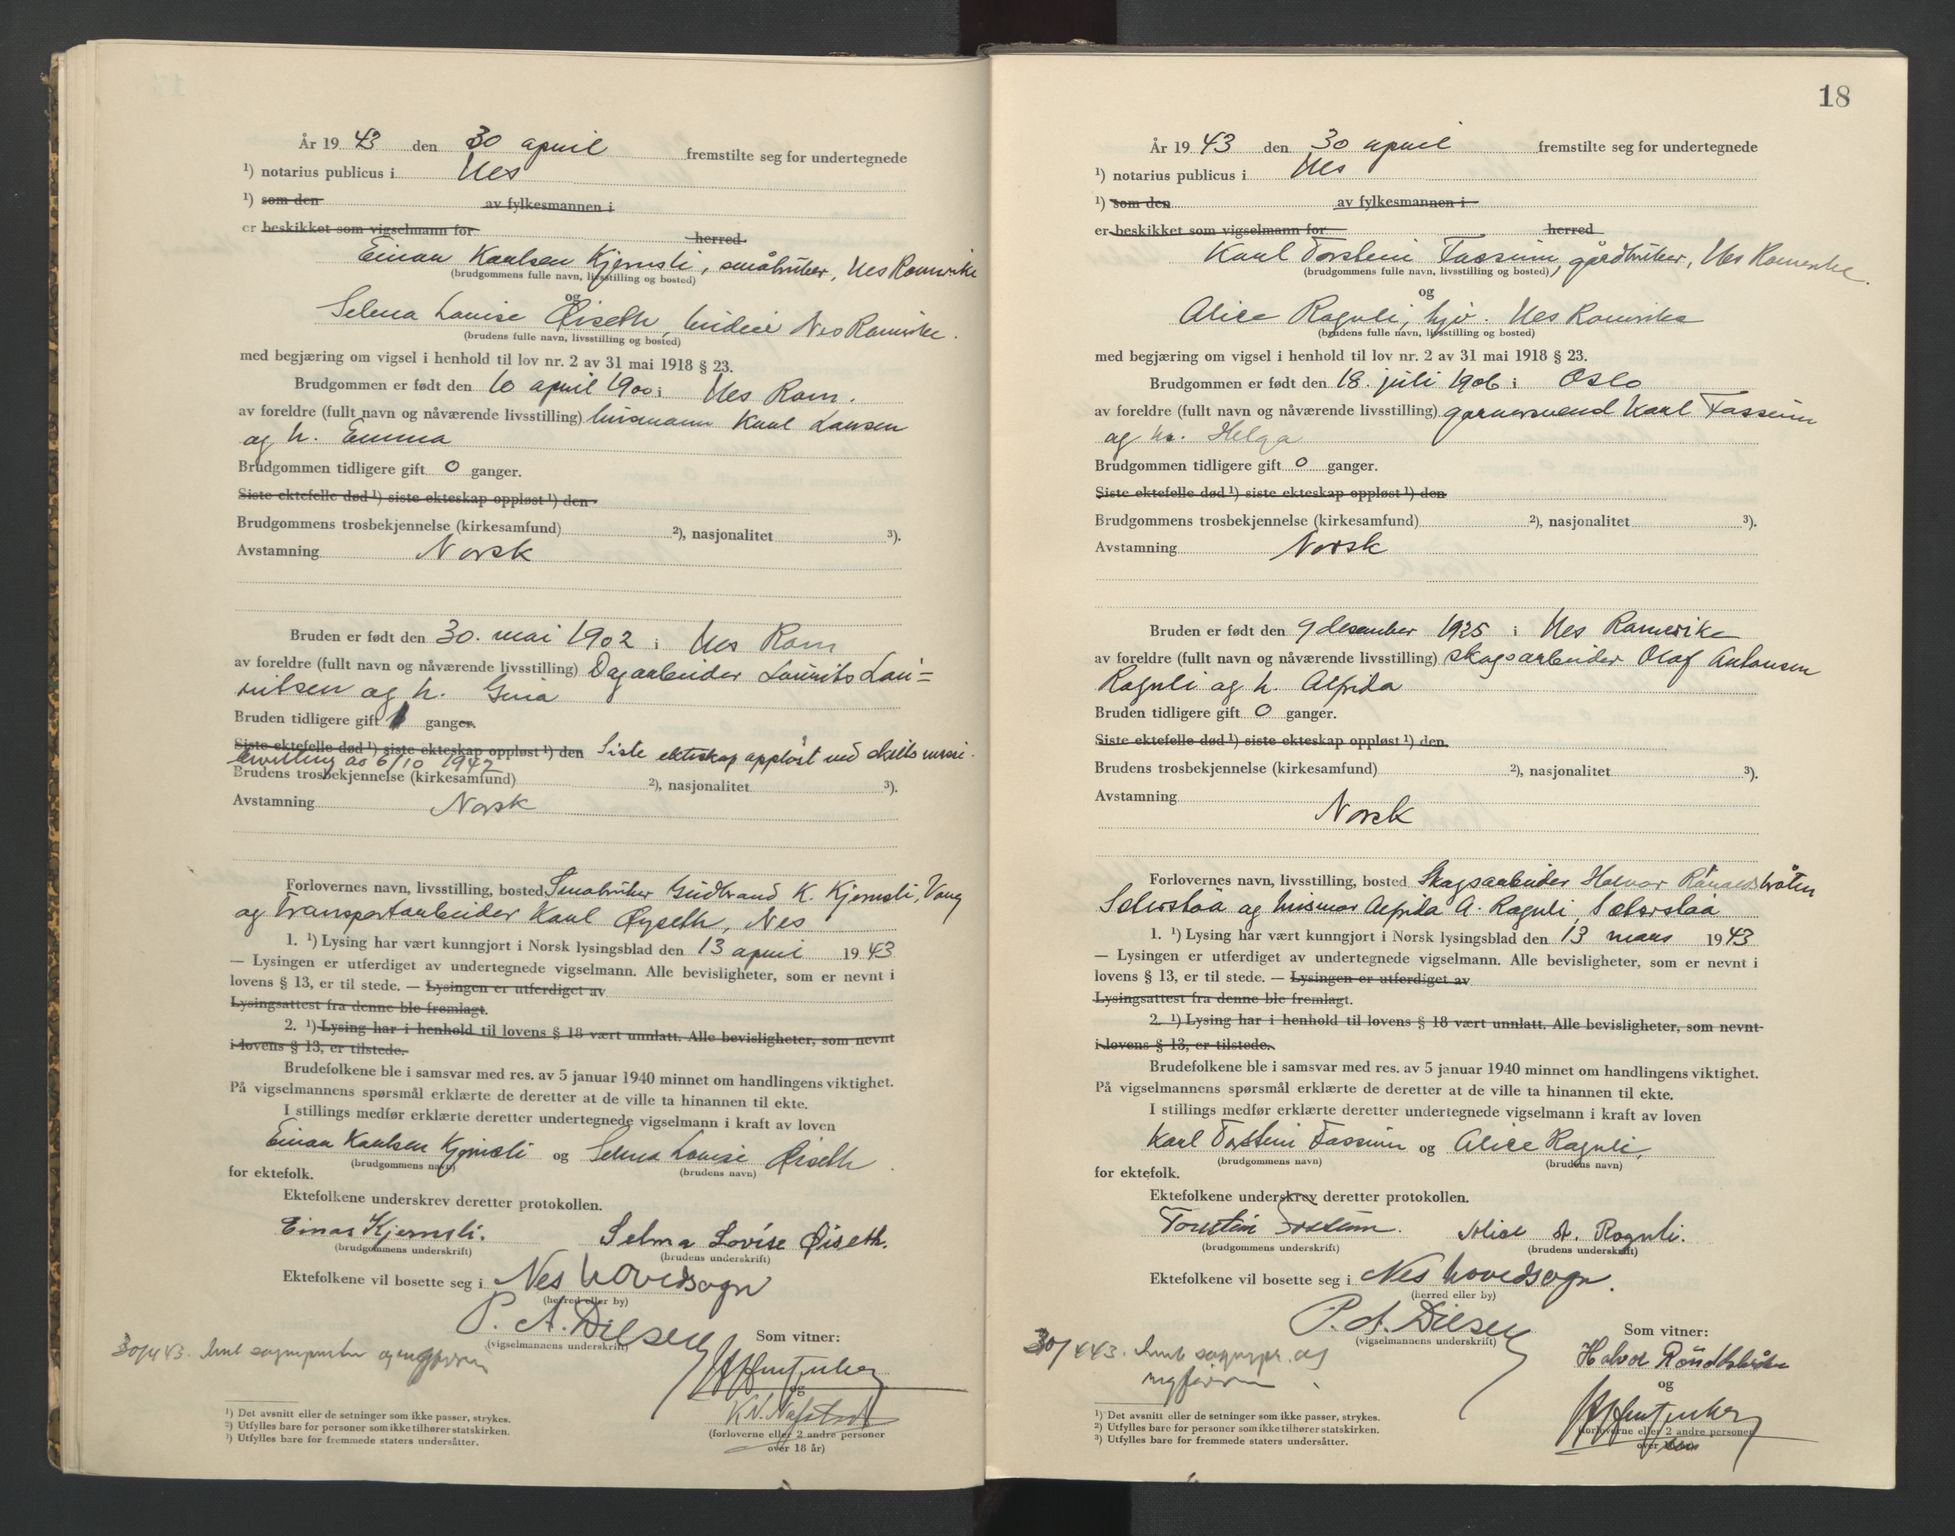 År 19 43 den 30 april fremstilte seg for undertegnede
¹) notarius publicus i Nes
¹) som den av fylkesmannen i
er beskikket som vigselmann for herred
Einar Karlsen Kjernsli, småbruker, Nes Romerike
(brudgommens fulle navn, livsstilling og bosted)
og
Selma Lovise Øiseth, budeie Nes Romerike.
(brudens fulle navn, livsstilling og bosted)
med begjæring om vigsel i henhold til lov nr. 2 av 31 mai 1918 § 23.
Brudgommen er født den 10 april 1900 i Nes Rom.
av foreldre (fullt navn og nåværende livsstilling) husmann Karl Larsen
og h. Emma
Brudgommen tidligere gift 0 ganger.
Siste ektefelle død ¹) siste ekteskap oppløst ¹) den
Brudgommens trosbekjennelse (kirkesamfund) ²), nasjonalitet ³).
Avstamning Norsk
Bruden er født den 30. mai 1902 i Nes Rom
av foreldre (fullt navn og nåværende livsstilling) Dagarbeider Laurits Lau=
ritsen og h. Gina
Bruden tidligere gift 1 ganger.
Siste ektefelle død ¹) siste ekteskap oppløst ¹) den Siste ekteskap oppløst ved skilsmisse.
bevilling av 6/10 1942
Brudens trosbekjennelse (kirkesamfund) ²), nasjonalitet ³).
Avstamning Norsk
Forlovernes navn, livsstilling, bosted Småbruker Gudbrand K. Kjernsli, Vang
og transportarbeider Karl Øyseth, Nes
1. ¹) Lysing har vært kunngjort i Norsk lysingsblad den 13 april 1943
— Lysingen er utferdiget av undertegnede vigselmann. Alle bevisligheter, som er nevnt i
lovens § 13, er til stede. — Lysingen er utferdiget av
Lysingsattest fra denne ble fremlagt.
2. ¹) Lysing har i henhold til lovens § 18 vært unnlatt. Alle bevisligheter, som nevnt
i lovens § 13, er tilstede.
Brudefolkene ble i samsvar med res. av 5 januar 1940 minnet om handlingens viktighet.
På vigselmannens spørsmål erklærte de deretter at de ville ta hinannen til ekte.
I stillings medfør erklærte deretter undertegnede vigselmann i kraft av loven
Einar Karlsen Kjernsli og Selma Lovise Øiseth.
(brudgommens navn) (brudens navn)
for ektefolk.
Ektefolkene underskrev deretter protokollen.
Einar Kjernsli. Selma Lovise Øiseth.
(brudgommens underskrift) (brudens underskrift)
Ektefolkene vil bosette seg i Nes hovedsogn
(herred eller by)
P. A. Dilsen
(vigselmannens underskrift)
Som vitner:
30/4 43.
og
K. N. Nafstad
(forloverne eller 2 andre personer
over 18 år)
¹) Det avsnitt eller de setninger som ikke passer, strykes.
²) Utfylles bare for personer som ikke tilhører statskirken.
³) Utfylles bare for fremmede staters undersåtter.
18
År 19 43 den 30 april fremstilte seg for undertegnede
¹) notarius publicus i Nes
¹) som den av fylkesmannen i
er beskikket som vigselmann for herred
Karl Torstein Fossum, gårdbruker, Nes Romerike.
(brudgommens fulle navn, livsstilling og bosted)
og
Alice Roguli, hjv. Nes Romerike
(brudens fulle navn, livsstilling og bosted)
med begjæring om vigsel i henhold til lov nr. 2 av 31 mai 1918 § 23.
Brudgommen er født den 18. juli 1906 i Oslo
av foreldre (fullt navn og nåværende livsstilling) garversvend Karl Fossum
og h. Helga
Brudgommen tidligere gift 0 ganger.
Siste ektefelle død ¹) siste ekteskap oppløst ¹) den
Brudgommens trosbekjennelse (kirkesamfund) ²), nasjonalitet ³).
Avstamning Norsk
Bruden er født den 9 desember 1925 i Nes Romerike
av foreldre (fullt navn og nåværende livsstilling) skogsarbeider Olaf Antonsen
Roguli og h. Alfrida
Bruden tidligere gift 0 ganger.
Siste ektefelle død ¹) siste ekteskap oppløst ¹) den.
Brudens trosbekjennelse (kirkesamfund) ²), nasjonalitet ³).
Avstamning
Norsk
Forlovernes navn, livsstilling, bosted Skogsarbeider Halvor
og husmor Alfrida A. Roguli,
1. ¹) Lysing har vært kunngjort i Norsk lysingsblad den 13 mars 1943
— Lysingen er utferdiget av undertegnede vigselmann. Alle bevisligheter, som er nevnt i
lovens § 13, er til stede. — Lysingen er utferdiget av
Lysingsattest fra denne ble fremlagt.
2. ¹) Lysing har i henhold til lovens § 18 vært unnlatt. Alle bevisligheter, som nevnt
i lovens § 13, er tilstede.
Brudefolkene ble i samsvar med res. av 5 januar 1940 minnet om handlingens viktighet.
På vigselmannens spørsmål erklærte de deretter at de ville ta hinannen til ekte.
I stillings medfør erklærte deretter undertegnede vigselmann i kraft av loven
Karl Torstein Fossum og Alice Roguli,
(brudgommens navn) (brudens navn)
for ektefolk.
Ektefolkene underskrev deretter protokollen.
Torstein Fossum. Alice A. Roguli.
(brudgommens underskrift) (brudens underskrift)
Ektefolkene vil bosette seg i Nes hovedsogn.
(herred eller by)
P. A. Dilsen
(vigselmannens underskrift)
Som vitner:
30/4 43.
Halvor
og
(forloverne eller 2 andre personer
over
¹) Det avsnitt eller de setninger som ikke passer, strykes.
²) Utfylles bare for personer som ikke tilhører statskirken.
³) Utfylles bare for fremmede staters undersåtter.